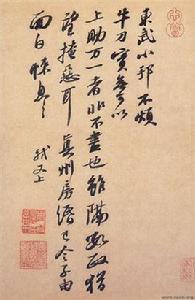 東武小邦不煩
牛刀實無可以
上助萬一者非不盡也雖隔數政猶
望掩惡耳 真州房緡已令子由
面白悚息〻
軾又上